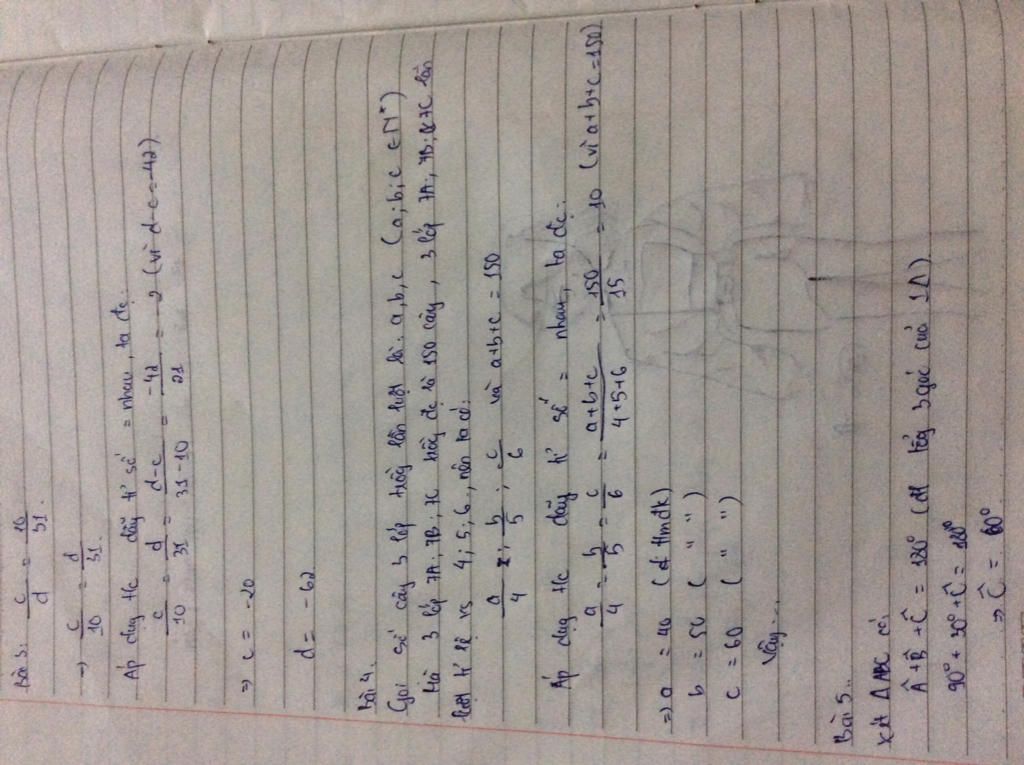 Bài 3: c/d = 10/31.
→ c/10 = d/31.
Áp dụg t/c dãy tỉ số = nhau, ta đc:
c/10 = d/31 = d-c/31-10 = -42/21 = -2 (vì d-c=-42)
⇒ c = -20
d = -62
Bài 4.
Gọi số cây 3 lớp trồg lần lượt là: a,b,c (a;b;c ∈ N*)
Mà 3 lớp 7A; 7B; 7C trồg đc là 150 cây, 3 lớp 7A; 7B; & 7C lần
lượt tỉ lệ vs 4; 5; 6, nên ta có:
a/4 ; b/5 ; c/6 và a+b+c = 150
Áp dụg t/c dãy tỉ số = nhau, ta đc:
a/4 = b/5 = c/6 = a+b+c/4+5+6 = 150/15 = 10 (vì a+b+c=150)
⇒ a = 40 (t/mđk)
b = 50 ( " " )
c = 60 ( " " )
Vậy...
Bài 5..
Xét Δ ABC có:
Â + B̂ + Ĉ = 180° (đl tổg 3 góc của 1 Δ)
90° + 30° + Ĉ = 180°
⇒ Ĉ = 60°